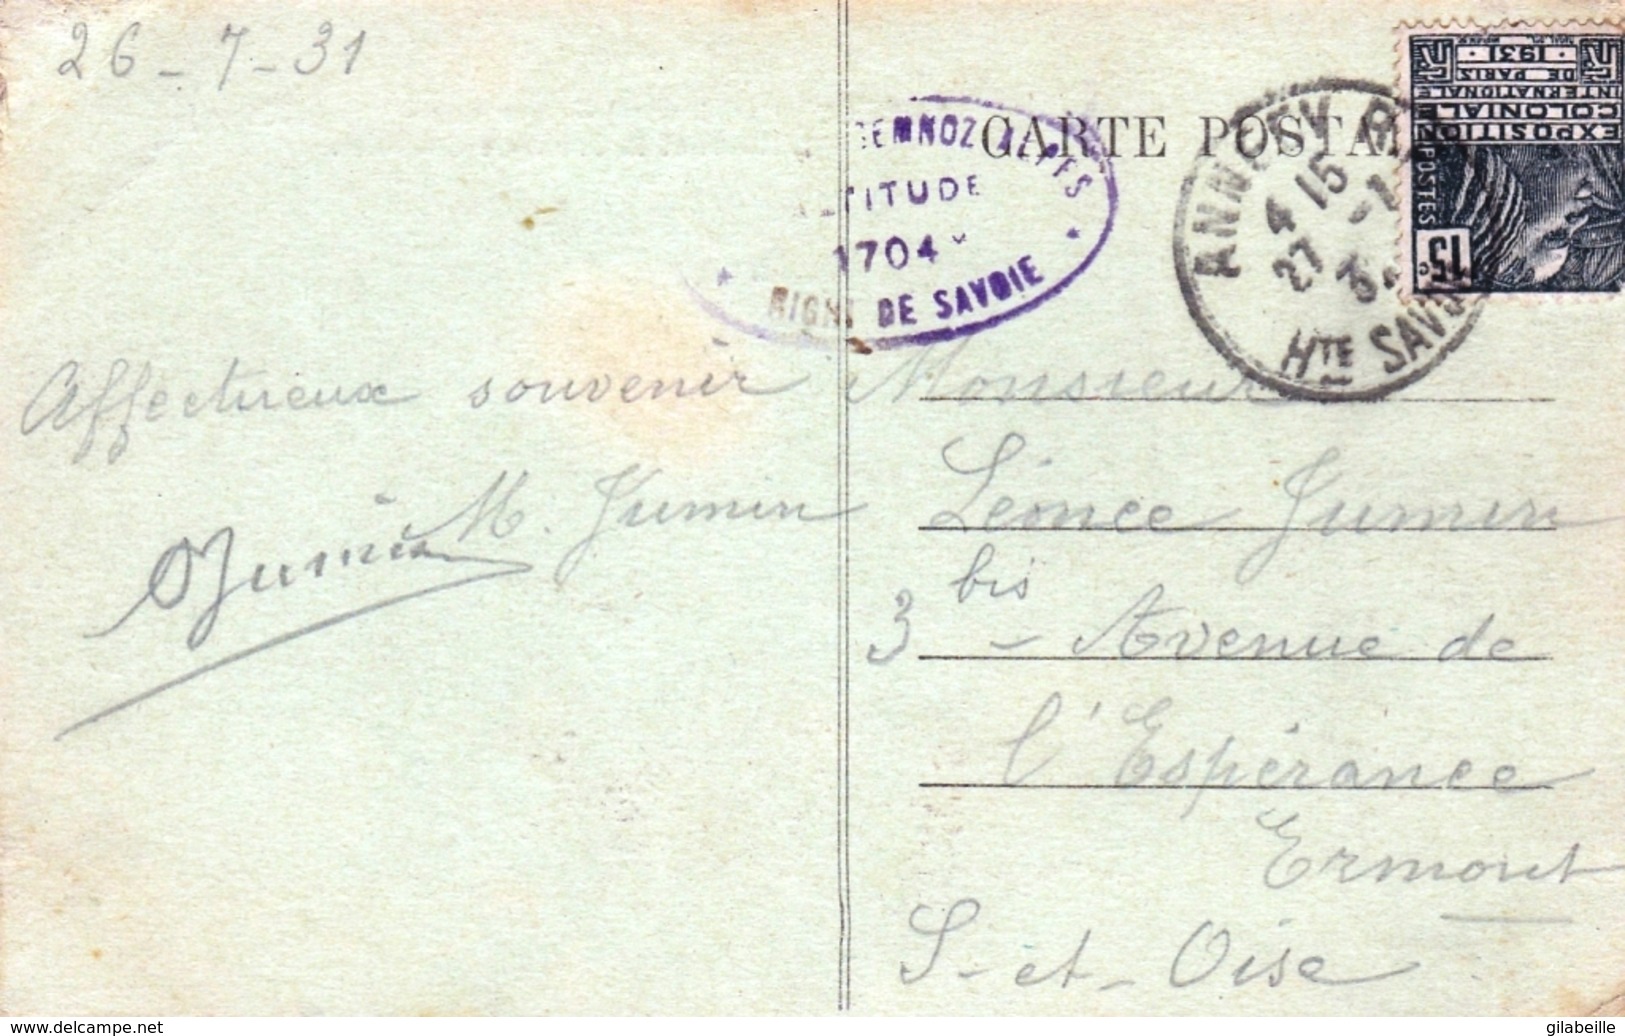 26-7-31
SEMNOZ ALPES
ALTITUDE
1704
RIGHI DE SAVOIE
CARTE POSTA
ANNECY
4 15
27
Hte SAVOIE
EXPOSITION
COLONIALE
INTERNATIONALE
DE PARIS
1931
POSTES
15c
Affectueux souvenir
M. Jumin
Jumin
Monsieur
Léonce Jumin
3 bis - Avenue de
l'Espérance
Ermont
S-et-Oise
www.delcampe.net
gilabeille